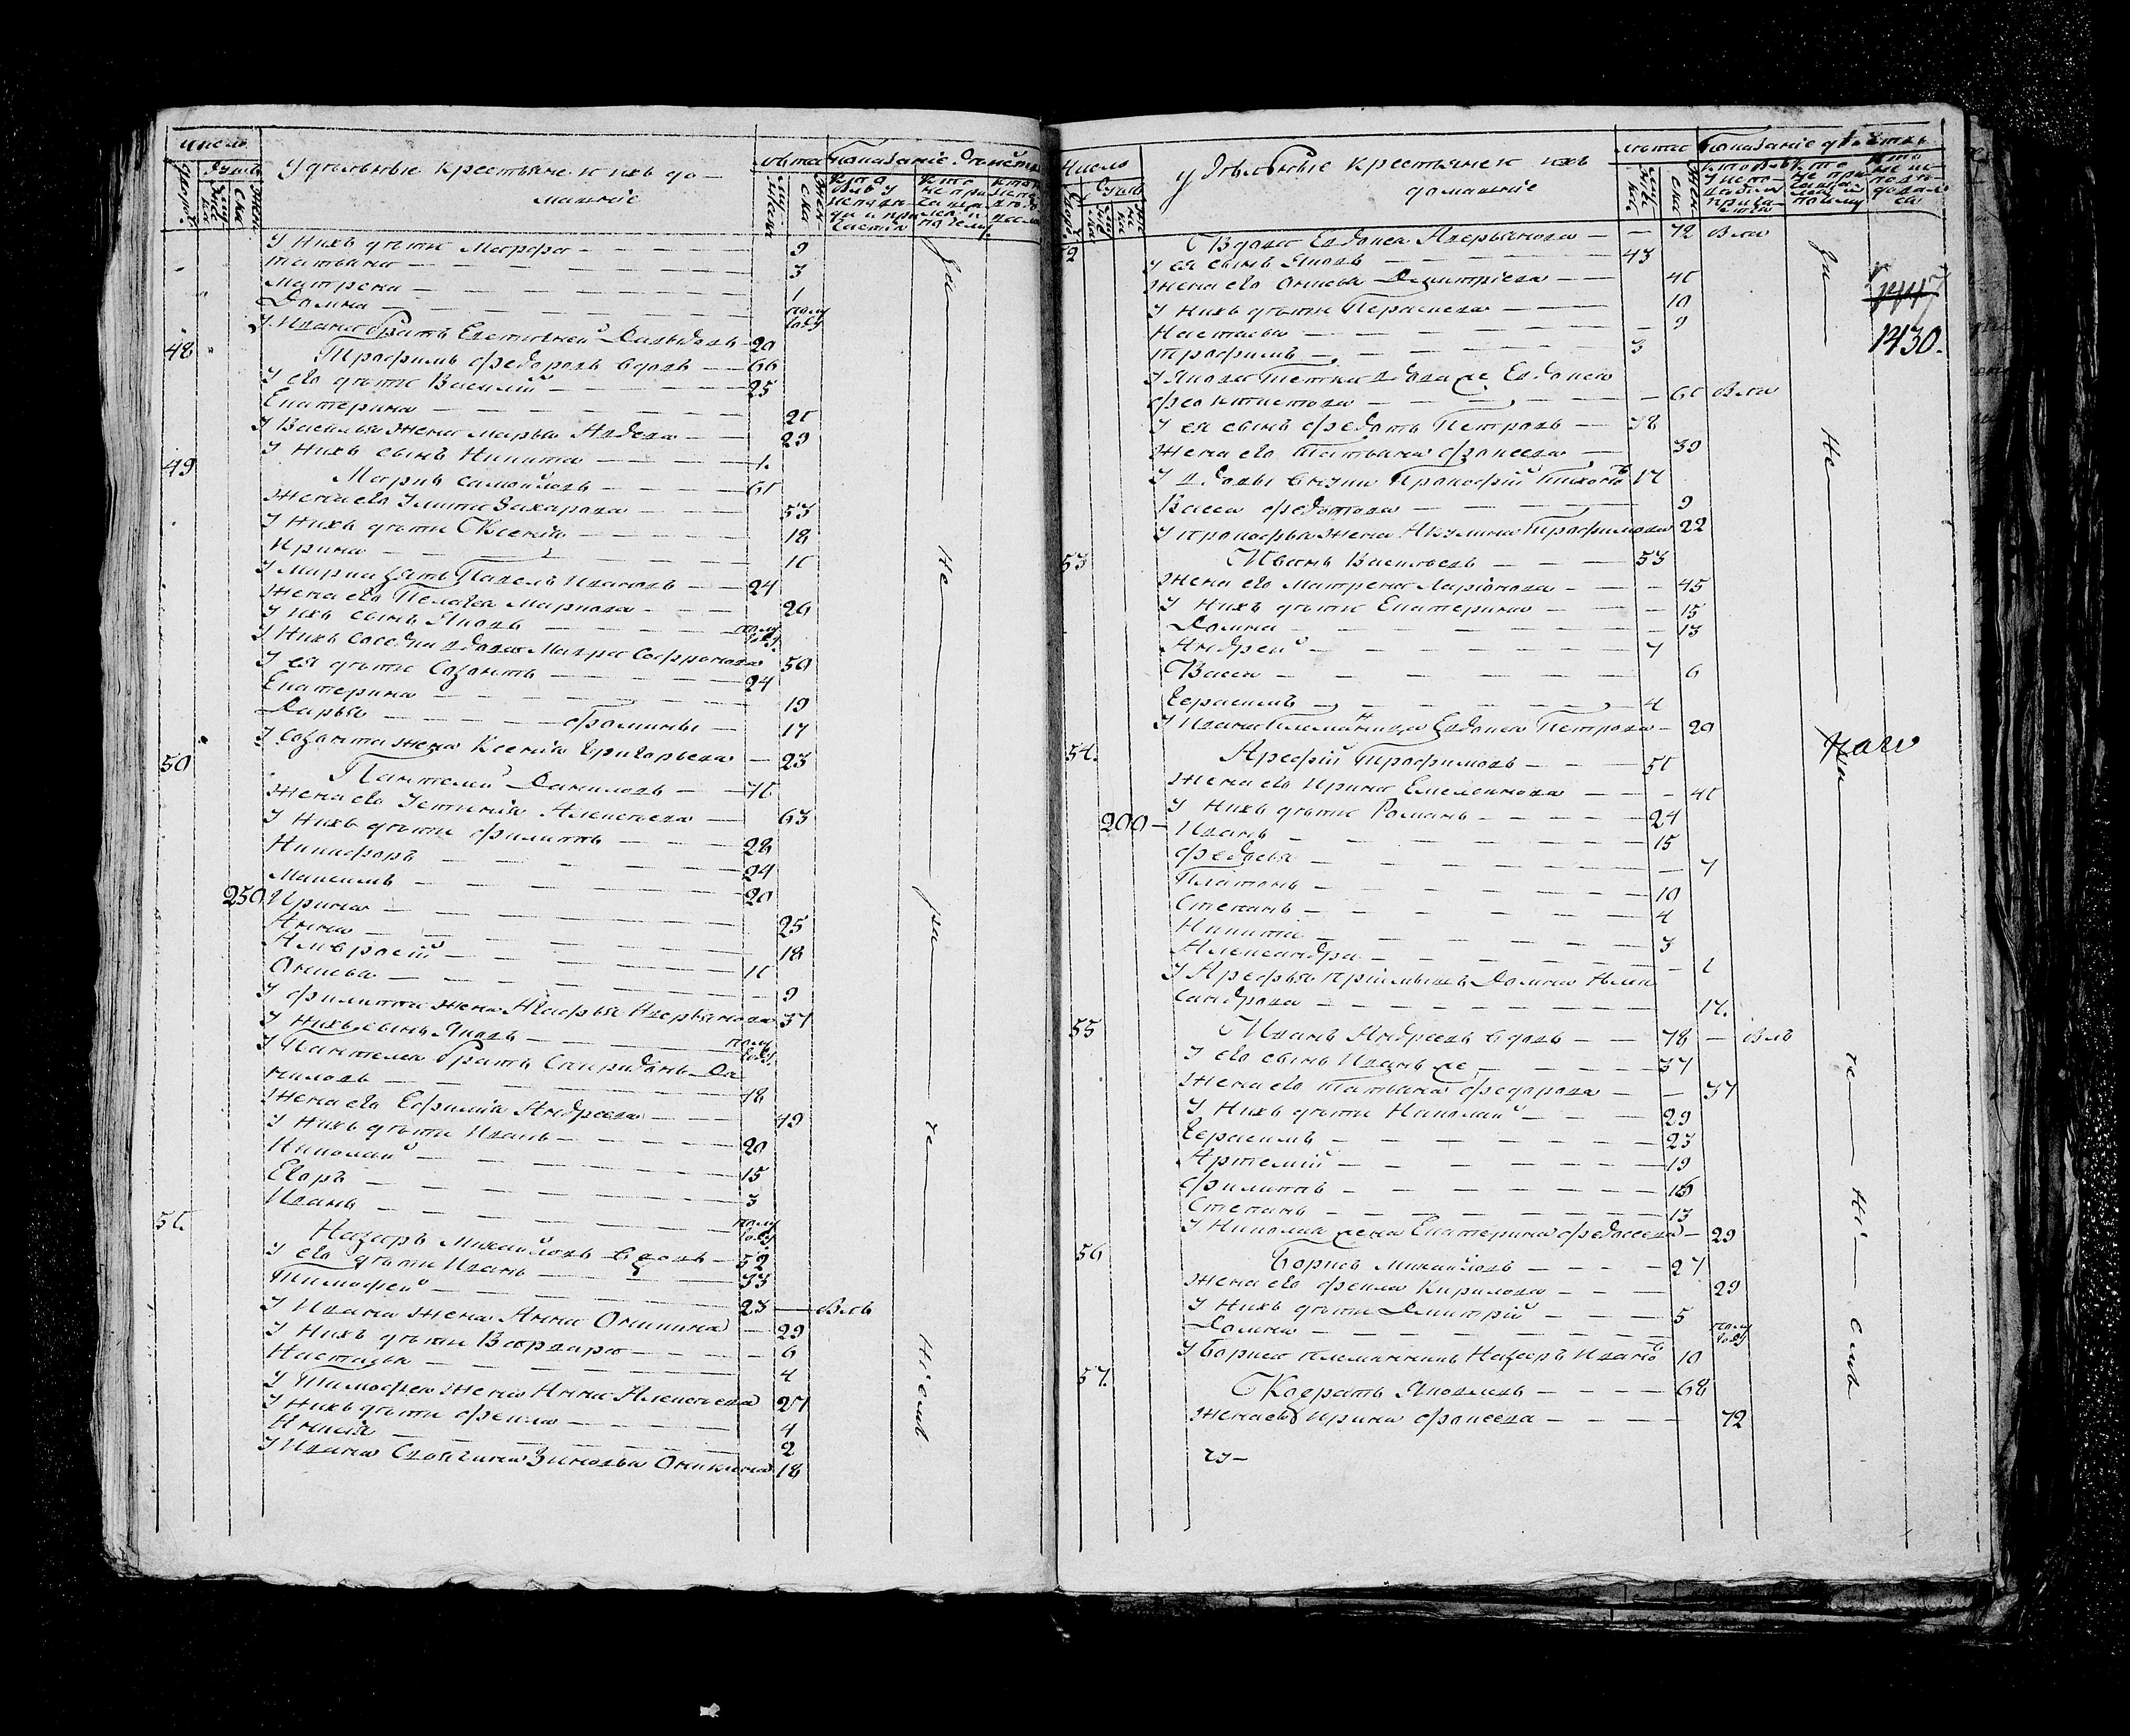 Число
Удѣльныя крестьяне и ихъ до-
машніе
Лѣта Показаніе дѣйства
У нихъ дѣти Марфа — 9
Татьяна — 3
Матрена — 1
Домна — полу году
У Ивана братъ Евстигней Давыдовъ — 20
48 Трофимъ Федоровъ вдовъ — 66
У его дѣти Василий — 25
Екатерина — 21
У Василья жена Марья Авдева — 29
У нихъ сынъ Никита — 1.
49 Маркъ Самойловъ — 61
Жена его Улита Захарова — 53
У нихъ дѣти Ксенія — 18
Ирина — 11
У Марка зять Павелъ Ивановъ — 24
Жена его Пелагея Маркова — 26
У ихъ сынъ Яковъ — полу году
У нихъ соседка вдова Мавра Софронова 50
У ея дѣти Созонтъ — 24
Екатерина — 19
Дарья — Фомины — 17
У Созонта жена Ксенія Григорьева — 23
50 Пантелей Даниловъ — 71
Жена его Устинія Алексеева — 63
У нихъ дѣти Филиппъ — 28
Никифоръ — 24
Максимъ — 20
250 Ирина — 25
Анна — 18
Амвросій — 11
Аксинья — 9
У Филиппа жена Агафья Аверьянова 37
У нихъ сынъ Яковъ — полу году
У Пантелея братъ Спиридонъ Да
ниловъ — 48
Жена его Ефимія Андреева — 49
У нихъ дѣти Иванъ — 20
Николай — 15
Егоръ — 3
Иванъ — полу году
51. Назаръ Михайловъ вдовъ — 52
У его дѣти Иванъ — 33
Тимофей — 23 — Былъ
У Ивана жена Анна Осипина — 29
У нихъ дѣти Варвара — 6
Настасья — 4
У Тимофея жена Анна Алексеева 27
У нихъ дѣти Фекла — 4
Аксинья — 2
У Ивана своячина Зиновья Осипина 18
За — Не — ра — че — ніемъ
Число
Удѣльныя крестьяне и ихъ
домашніе
Лѣта Показаніе дѣйства
52 Вдова Евдокея Аверьянова — 72 Была
У ея сынъ Яковъ — 43
Жена его Аксинья Дмитріева — 41
У нихъ дѣти Парасковья — 10
Настасья — 9
Трофимъ — 3
У Якова тетка вдова же Евдокея
Феоктистова — 61 Была
У ея сынъ Федотъ Петровъ — 38
Жена его Татьяна Фокеева — 39
У вдовы внуки Прокофій Тиховъ 17
Васса Федотова — 9
У Прокофья жена Акулина Трофимова 22
53 Иванъ Васильевъ — 53
Жена его Матрена Ларіонова — 45
У нихъ дѣти Екатерина — 15
Домна — 13
Андрей — 7
Васса — 6
Герасимъ — 4
У Ивана племянница Евдокея Петрова — 20
54. Арефій Трофимовъ — 51
Жена его Ирина Емельянова — 41
У нихъ дѣти Романъ — 24
200 — Иванъ — 15
Федосья — 7
Платонъ — 10
Степанъ — 4
Никита — 3
Александра — 1
У Арефья пріимышъ Домна Алек
сандрова — 17.
55 Иванъ Андреевъ вдовъ — 78 — Былъ
У его сынъ Иванъ же — 37
Жена его Татьяна Федорова — 37
У нихъ дѣти Николай — 29
Герасимъ — 23
Артемій — 19
Филиппъ — 16
Степанъ — 13
У Николая жена Екатерина Федосеева — 29
56 Борисъ Михайловъ — 27
Жена его Фекла Кирилова — 29
У нихъ дѣти Дмитрій — 5
Домна — полу году
У Бориса племянникъ Назаръ Ивановъ 10
57. Кодратъ Яковлевъ — 68
Жена его Ирина Фокеева — 72
1430.
За — Не — ра — че — ні — емъ